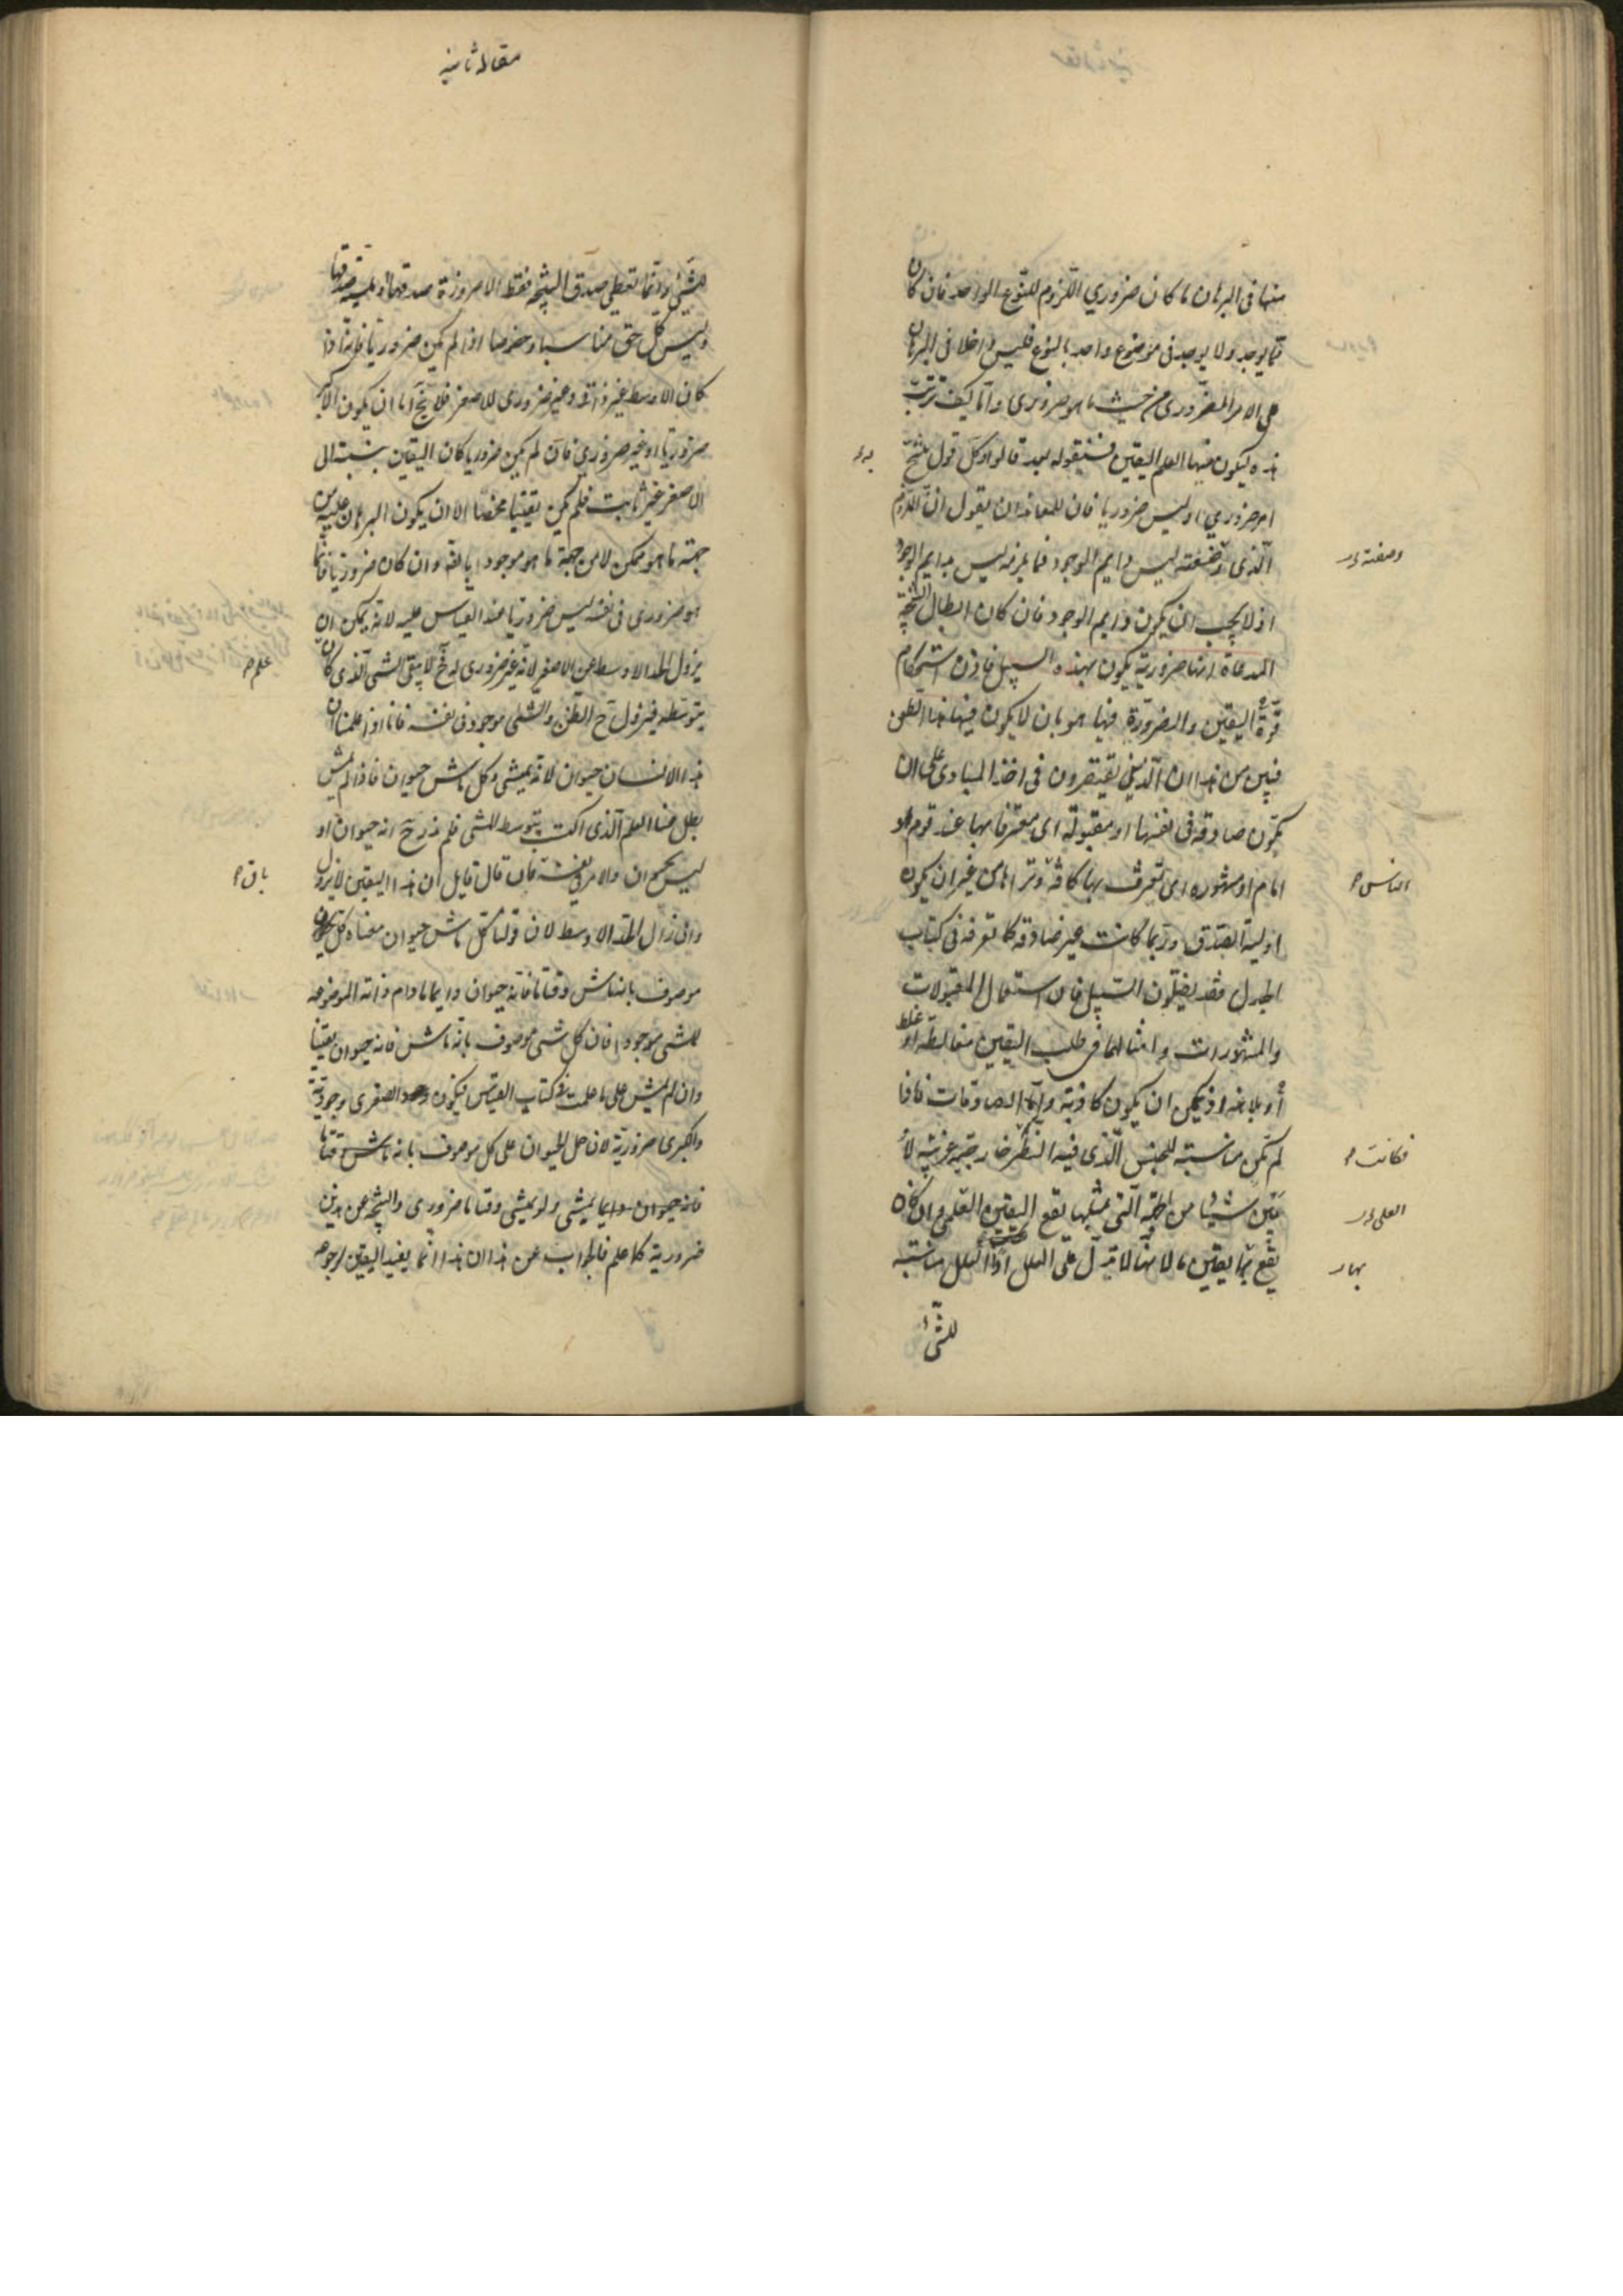 منها فى البرهان ما كان ضرورى اللزوم للنوع الواحد فان كان
مما يوجد ولا يوجد فى موضوع واحد بالنوع فليس داخلا فى البرهان
على الامر الضرورى من حيث ما هو ضرورى واما كيف ترتب
هذه ليكون منها العلم اليقين فسنقوله بعد قالوا وكل قول ينتج
امر ضرورى او ليس ضروريا فان للمعاند ان يقول ان اللازم
الذى وضعته ليس دايم الوجود فما يلزمه ليس بدايم الوجود
اذ لا يجب ان يكون دايم الوجود فان كان ابطال النتيجة
المدعاة انها ضرورية يكون بهذه السبيل فاذن استحكام
قوة اليقين والضرورة فيها هو بان لا يكون فيها هذا الطعن
فبين من هذا ان الذين يقتصرون فى اخذ المبادى على ان
يكون صادقة فى نفسها او مقبولة اى معترفا بها عند قوم او
امام او مشهورة اى تعرف بها كافة وتراها من غير ان يكون
اولية الصدق وربما كانت غير صادقة كما تعرفه فى كتاب
الجدل فقد يضلون السبيل فان استعمال المقبولات
والمشهورات وامثالها فى طلب اليقين مغالطة او غلط
او بلاهة اذ يمكن ان يكون كاذبة واما الصادقات فاذا
لم يكن مناسبة للجنس الذى فيه النظر خارجية غريبة لا
يبين شيئا من الجهة التى بمثلها يقع اليقين العلمى وان كان
يقع بها يقين ما لانها لا تدل على العلل اذ العلل مناسبة
للشئ
به
وضعته
الناس
فكانت
العلى
بها
مقاله ثانيه
للشئ وانما تعطى صدق النتيجة فقط لا ضرورة صدقها او لمية صدقها
وليس كل حق مناسبا وخصوصا اذا لم يكن ضروريا فانه اذا
كان الاوسط غير ضرورى للاصغر فلا يخ اما ان يكون الاكبر
ضروريا او غير ضرورى فان لم يكن ضروريا كان اليقين بنسبته الى
الاصغر غير ثابت فلم يكن يقينا محضا الا ان يكون البرهان عليه من
جهة ما هو ممكن لا من جهة ما هو موجود بالفعل وان كان ضروريا فانما
هو ضرورى فى نفسه ليس ضروريا عند القياس عليه لانه يمكن ان
يزول الحد الاوسط عن الاصغر لانه غير ضرورى له فح لا يبقى الشئ الذى كان
بتوسطه فيزول ح الظن والشئ موجود فى نفسه فانا اذا علمنا ان
هذا الانسان حيوان لانه يمشى وكل ماش حيوان فاذا لم يمش
بطل عنا العلم الذى اكتسب بتوسط المشى فلم ندر ح انه حيوان او
ليس بحيوان والامر فى نفسه فان قال قايل ان هذا اليقين لا يزول
وان زال الحد الاوسط لان قولنا كل ماش حيوان معناه كل شئ
موصوف بانه ماش وقتا ما فانه حيوان دايما ما دام ذاته الموضوعة
للمشى موجودا فان كل شئ موصوف بانه ماش فانه حيوان يقينا
وان لم يمش على ما علمت فى كتاب القياس فيكون الصغرى وجودية
والكبرى ضرورية لان حمل الحيوان على كل موصوف بانه ماش وقتا ما
فانه حيوان دايما يمشى ولو يمشى وقتا ما ضرورى والنتيجة عن هذين
ضرورية كما علم فالجواب عن هذا ان هذا انما يفيد اليقين لوجوه
علم
باق